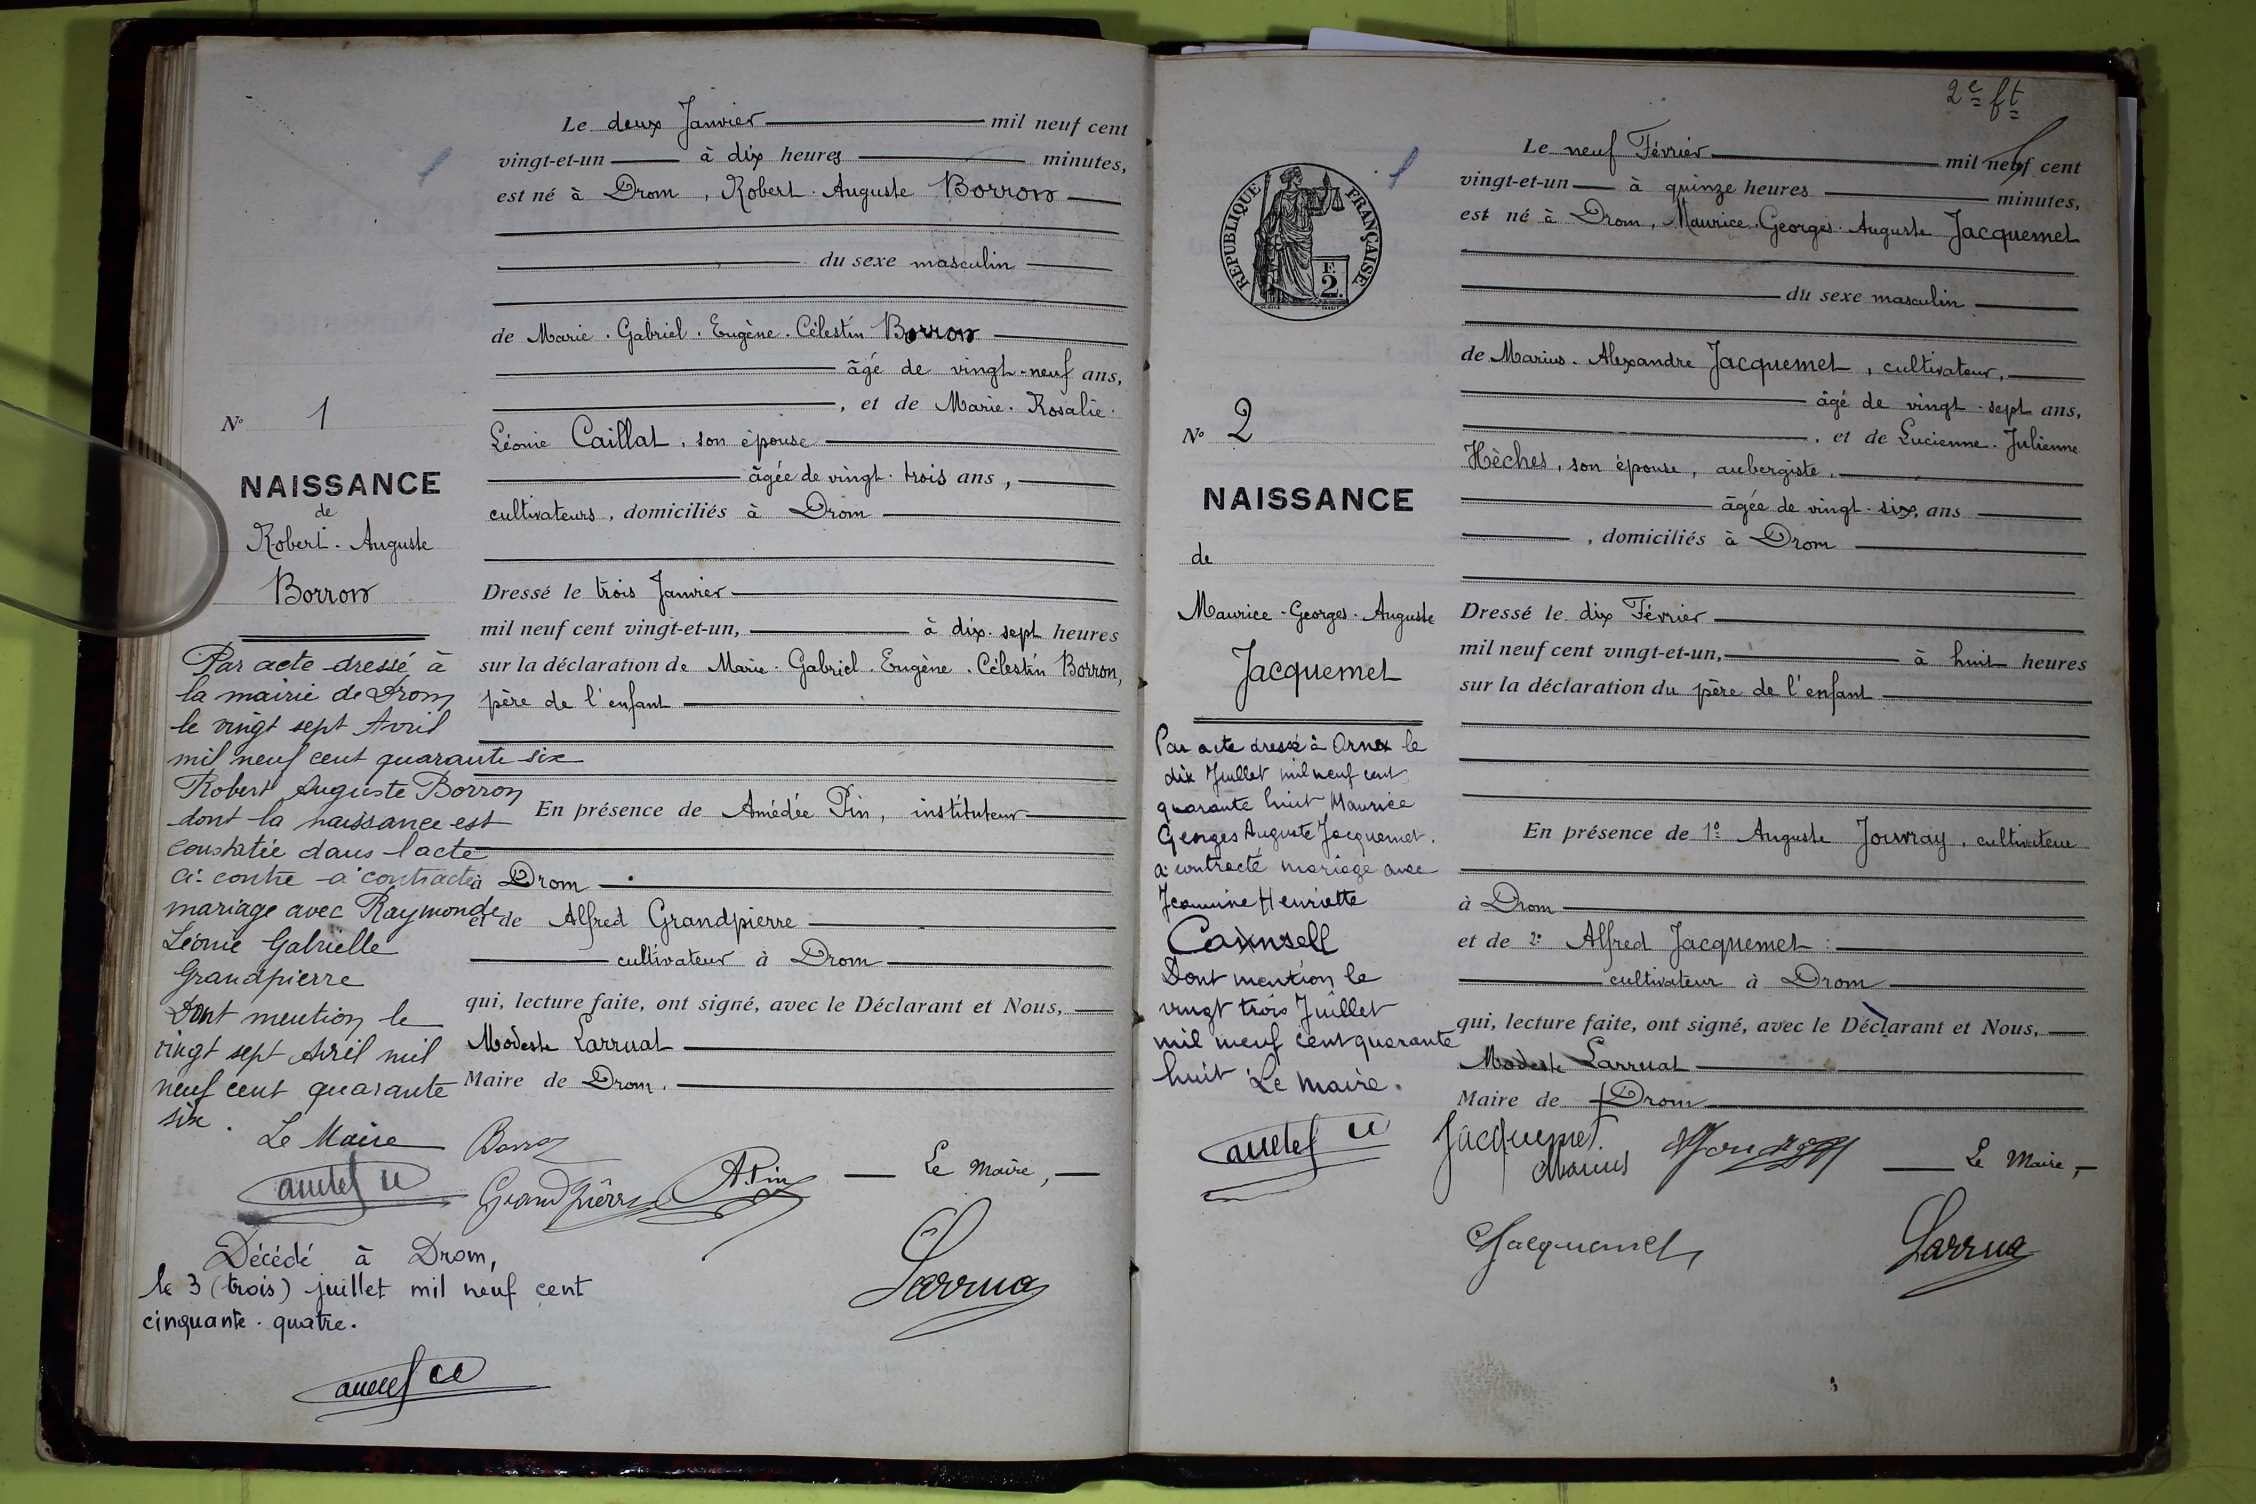 Le deux Janvier mil neuf cent
vingt-et-un à dix heures minutes,
est né à Drom, Robert. Auguste Borron
du sexe masculin
de Marie. Gabriel. Eugène. Célestin Borron
âgé de vingt-neuf ans,
, et de Marie. Rosalie.
Léonie Caillat, son épouse
âgée de vingt. trois ans,
cultivateurs, domiciliés à Drom
Dressé le trois Janvier
mil neuf cent vingt-et-un, à dix. sept heures
sur la déclaration de Marie. Gabriel. Eugène. Célestin Borron,
père de l'enfant
En présence de Amédée Pin, instituteur
à Drom
et de Alfred Grandpierre
cultivateur à Drom
qui, lecture faite, ont signé, avec le Déclarant et Nous,
Modeste Larruat
Maire de Drom.
Le Maire,
Borron
Grandpierre
A. Pin
Larrua
N° 1
NAISSANCE
de
Robert. Auguste
Borron
Par acte dressé à
la mairie de Drom
le vingt sept Avril
mil neuf cent quarante six
Robert Auguste Borron
dont la naissance est
constatée dans l'acte
ci-contre a contracté
mariage avec Raymonde
Léonie Gabrielle
Grandpierre
Dont mention le
vingt sept Avril mil
neuf cent quarante
six.
Le Maire
Décédé à Drom,
le 3 (trois) juillet mil neuf cent
cinquante. quatre.
2e ft
RÉPUBLIQUE FRANÇAISE
F.
2.
Le neuf Février mil neuf cent
vingt-et-un à quinze heures minutes,
est né à Drom, Maurice. Georges. Auguste Jacquemet
du sexe masculin
de Marius. Alexandre Jacquemet, cultivateur,
âgé de vingt. sept ans,
, et de Lucienne. Julienne
Hèches, son épouse, aubergiste,
âgée de vingt. six, ans
, domiciliés à Drom
Dressé le dix Février
mil neuf cent vingt-et-un, à huit heures
sur la déclaration du père de l'enfant
En présence de 1° Auguste Jouvray, cultivateur
à Drom
et de 2° Alfred Jacquemet
cultivateur à Drom
qui, lecture faite, ont signé, avec le Déclarant et Nous,
Modeste Larruat
Maire de Drom
Jacquemet
Marius
Le Maire,
Jacquemet
Larrua
N° 2
NAISSANCE
de
Maurice. Georges. Auguste
Jacquemet
Par acte dressé à Ornex le
dix Juillet mil neuf cent
quarante huit Maurice
Georges Auguste Jacquemet.
a contracté mariage avec
Jeannine Henriette
Dont mention le
vingt trois Juillet
mil neuf cent quarante
huit. Le Maire.